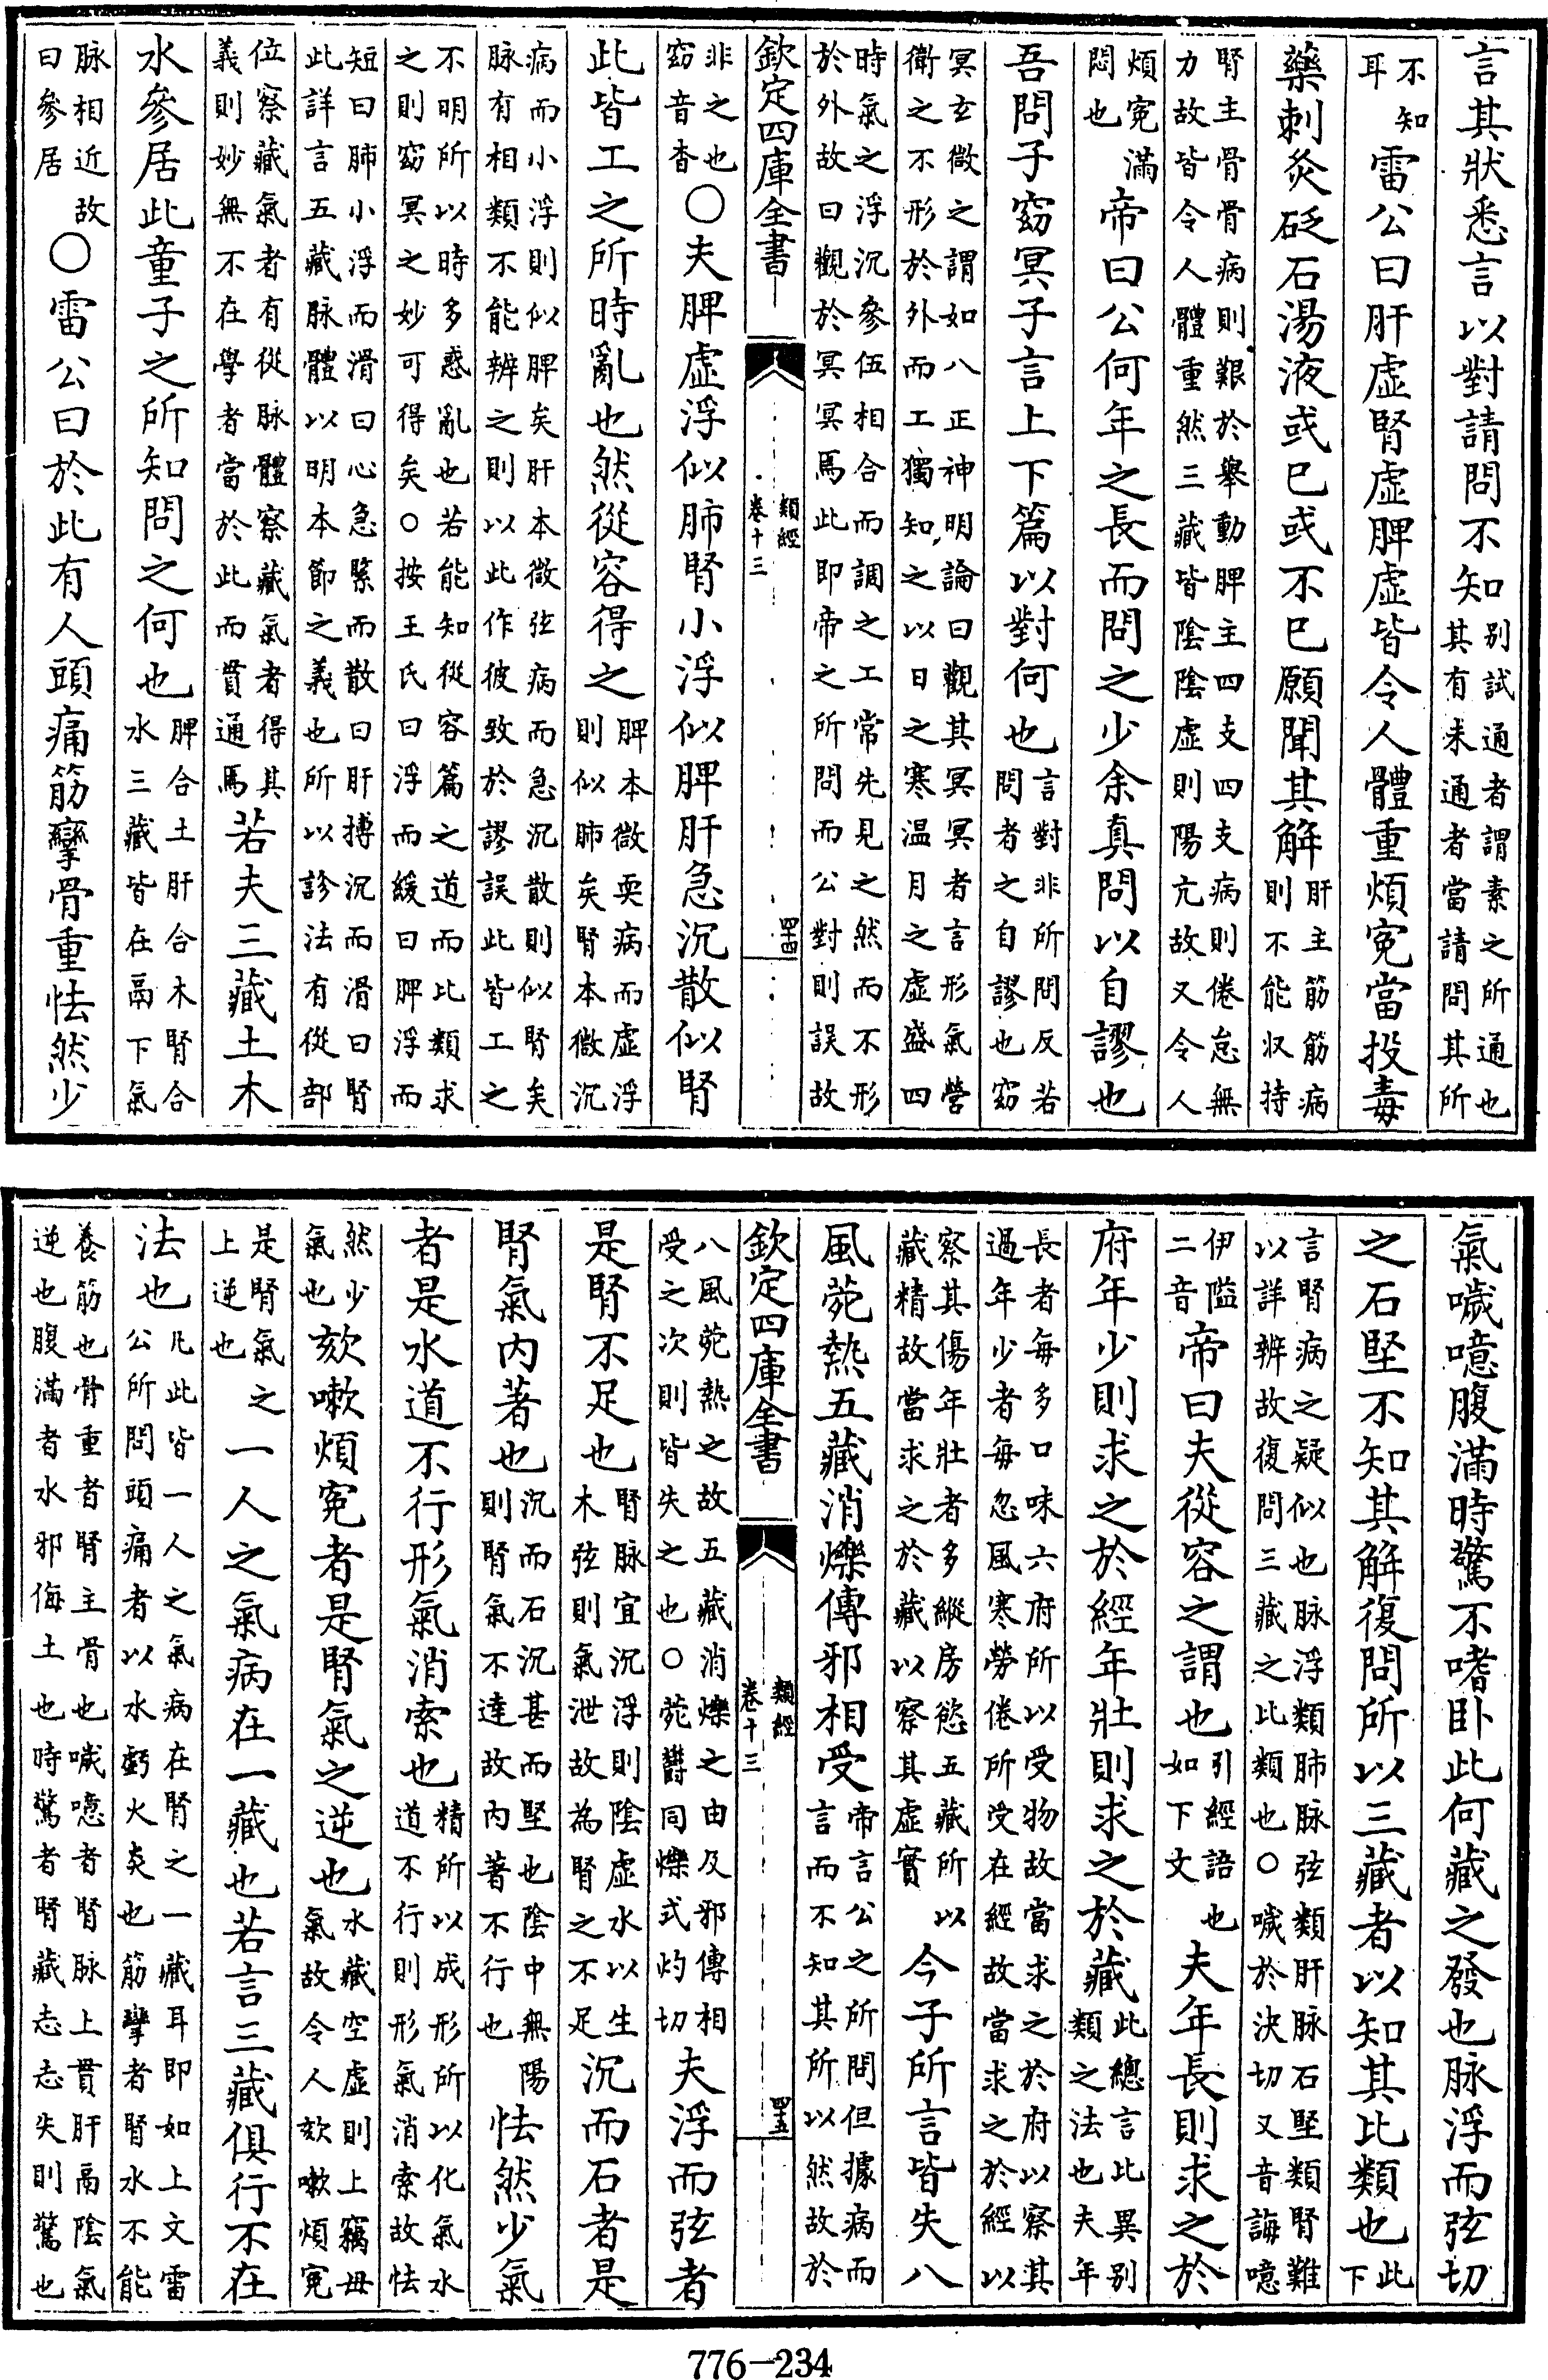 言其狀悉言以對請問不知別試通者謂素之所通也其有未通者當請問其所
不知耳雷公曰肝虛腎虛脾虛皆令人體重煩寃當投毒
藥刺灸砭石湯液或已或不已願聞其解肝主筋筋病則不能収持
腎主骨骨病則艱於舉動脾主四支四支病則倦怠無力故皆令人體重然三藏皆陰陰虛則陽亢故又令人
煩寃滿悶也帝曰公何年之長而問之少余真問以自謬也
吾問子窈冥子言上下篇以對何也言對非所問反若問者之自謬也窈
冥玄微之謂如八正神明論曰觀其冥冥者言形氣營衛之不形於外而工獨知之以日之寒温月之虛盛四
時氣之浮沉參伍相合而調之工常先見之然而不形於外故曰觀於冥冥焉此即帝之所問而公對則誤故
欽定四庫全書 類經 卷十三 四四
非之也窈音杳○夫脾虛浮似肺腎小浮似脾肝急沉散似腎
此皆工之所時亂也然從容得之脾本微耎病而虛浮則似肺矣腎本微沉
病而小浮則似脾矣肝本微弦病而急沉散則似腎矣脉有相類不能辨之則以此作彼致於謬誤此皆工之
不明所以時多惑亂也若能知從容篇之道而比類求之則窈冥之妙可得矣○按王氏曰浮而緩曰脾浮而
短曰肺小浮而滑曰心急緊而散曰肝搏沉而滑曰腎此詳言五藏脉體以明本節之義也所以診法有從部
位察藏氣者有從脉體察藏氣者得其義則妙無不在學者當於此而貫通焉若夫三藏土木
水參居此童子之所知問之何也脾合土肝合木腎合水三藏皆在鬲下氣
脉相近故曰參居○雷公曰於此有人頭痛筋攣骨重怯然少
氣噦噫腹滿時驚不嗜卧此何藏之發也脉浮而弦切
之石堅不知其解復問所以三藏者以知其比類也此下
言腎病之疑似也脉浮類肺脉弦類肝脉石堅類腎難以詳辨故復問三藏之比類也○噦於決切又音誨噫
伊隘二音帝曰夫從容之謂也引經語也如下文夫年長則求之於
府年少則求之於經年壯則求之於藏此總言比異別類之法也夫年
長者每多口味六府所以受物故當求之於府以察其過年少者每忽風寒勞倦所受在經故當求之於經以
察其傷年壯者多縱房慾五藏所以藏精故當求之於藏以察其虛實今子所言皆失八
風菀熱五藏消爍傳邪相受帝言公之所問但據病而言而不知其所以然故於
欽定四庫全書 類經 卷十三 四五
八風菀熱之故五藏消爍之由及邪傳相受之次則皆失之也○菀欝同爍式灼切夫浮而弦者
是腎不足也腎脉宜沉浮則陰虛水以生木弦則氣泄故為腎之不足沉而石者是
腎氣内著也沉而石沉甚而堅也陰中無陽則腎氣不達故内著不行也怯然少氣
者是水道不行形氣消索也精所以成形所以化氣水道不行則形氣消索故怯
然少氣也欬嗽煩寃者是腎氣之逆也水藏空虛則上竊母氣故令人欬嗽煩寃
是腎氣之上逆也一人之氣病在一藏也若言三藏俱行不在
法也凡此皆一人之氣病在腎之一藏耳即如上文雷公所問頭痛者以水虧火炎也筋攣者腎水不能
養筋也骨重者腎主骨也噦噫者腎脉上貫肝鬲陰氣逆也腹滿者水邪侮土也時驚者腎藏志志失則驚也
776-234